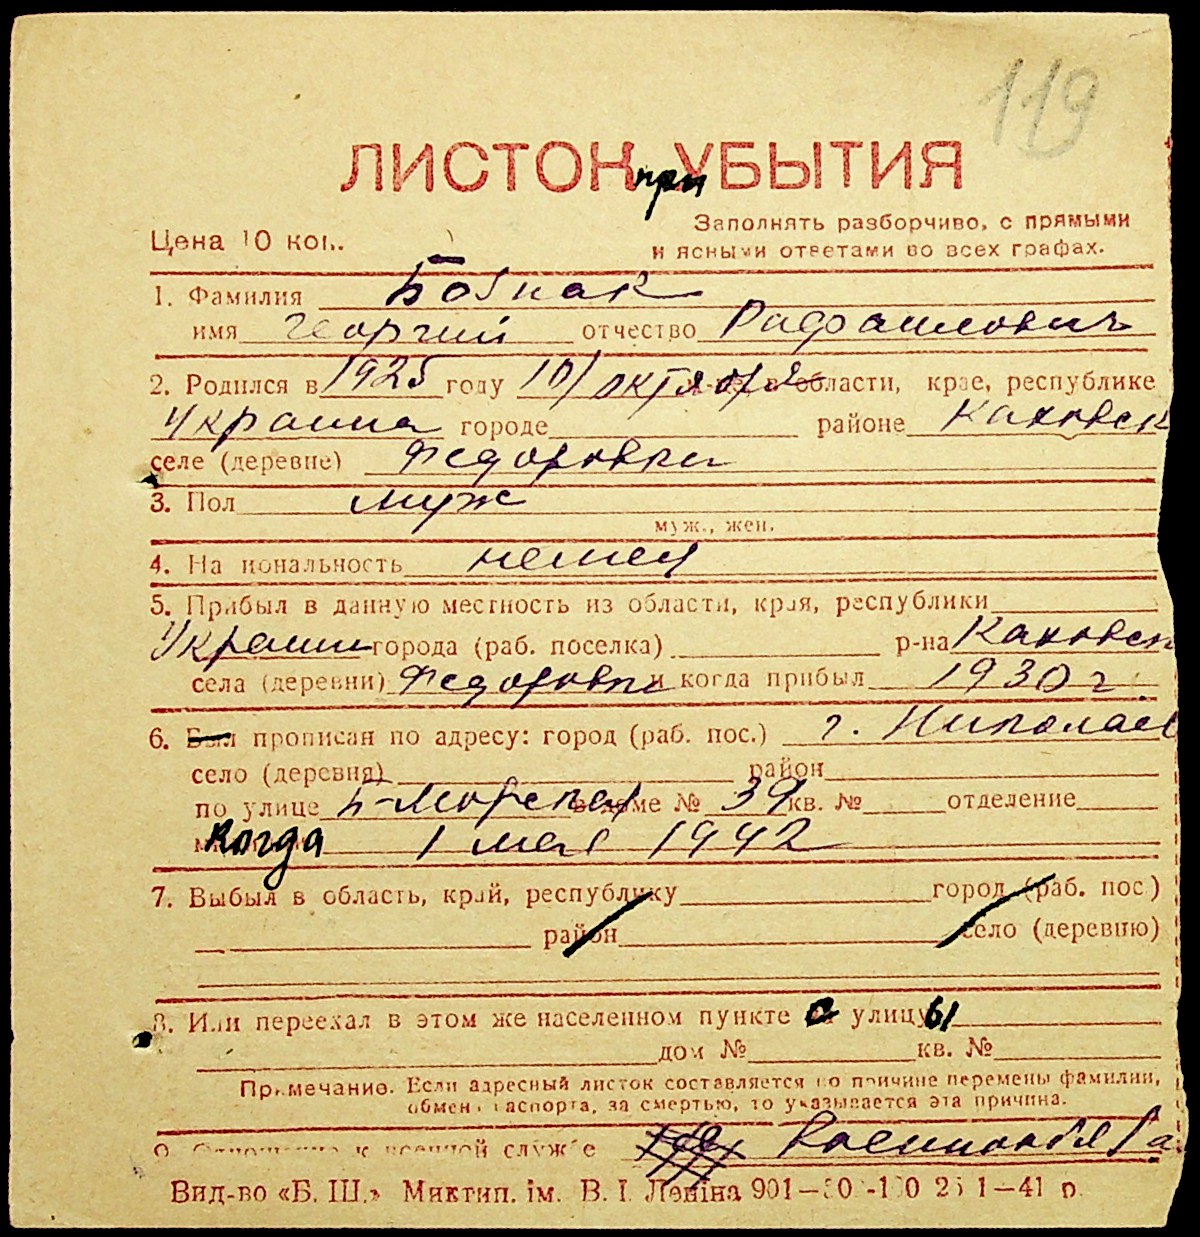 119
ЛИСТОК при УБЫТИЯ
Заполнять разборчиво, с прямыми
Цена 10 коп.
и ясными ответами во всех графах.
1. Фамилия Божнак
имя Георгий отчество Рафаилович
2. Родился в 1925 году 10/октября области, крае, республике
Украина городе районе Каховск
селе (деревне) Федоровка
3. Пол муж
муж., жен.
4. Национальность немец
5. Прибыл в данную местность из области, края, республики
Украины города (раб. поселка) р-на Каховск
села (деревни) Федоровка и когда прибыл 1930 г.
6. Был прописан по адресу: город (раб. пос.) г. Николаев
село (деревня) район
по улице Б-Морская в доме № 39 кв. № отделение
Когда 1 мая 1942
7. Выбыл в область, край, республику город (раб. пос)
район село (деревню)
8. Или переехал в этом же населенном пункте с улицы
дом № кв. №
Примечание. Если адресный листок составляется по причине перемены фамилии,
обмена паспорта, за смертью, то указывается эта причина.
9. Отношение к военной службе Военнообяза
Вид-во «Б. Ш.» Миктип. ім. В. І. Леніна 1—41 р.